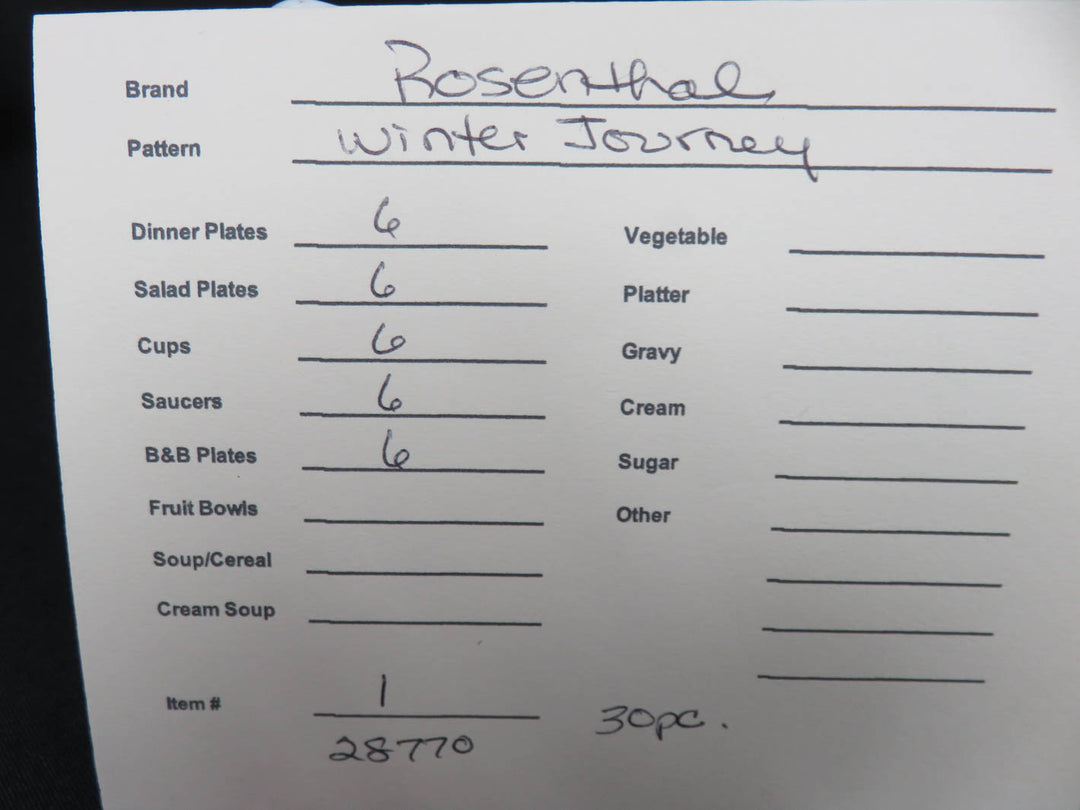 Brand Rosenthal
Pattern Winter Journey
Dinner Plates 6
Salad Plates 6
Cups 6
Saucers 6
B&B Plates 6
Fruit Bowls
Soup/Cereal
Cream Soup
Vegetable
Platter
Gravy
Cream
Sugar
Other
Item # 1
28770
30pc.